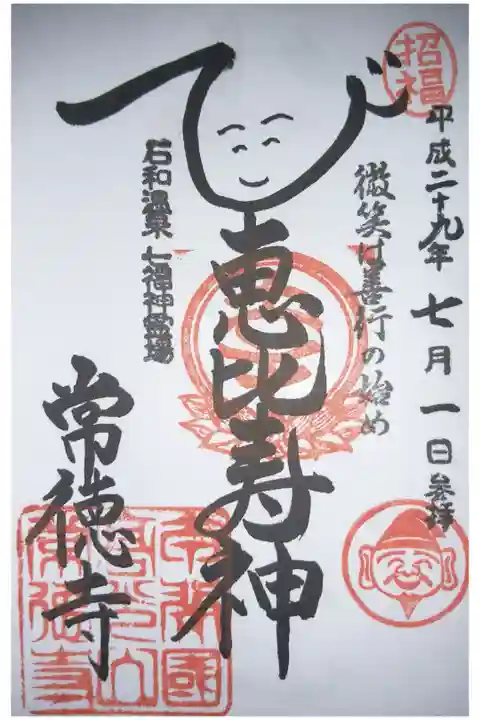 招福
平成二十九年七月一日参拝
微笑は善行の始め
恵比寿神
石和温泉 七福神霊場
常徳寺